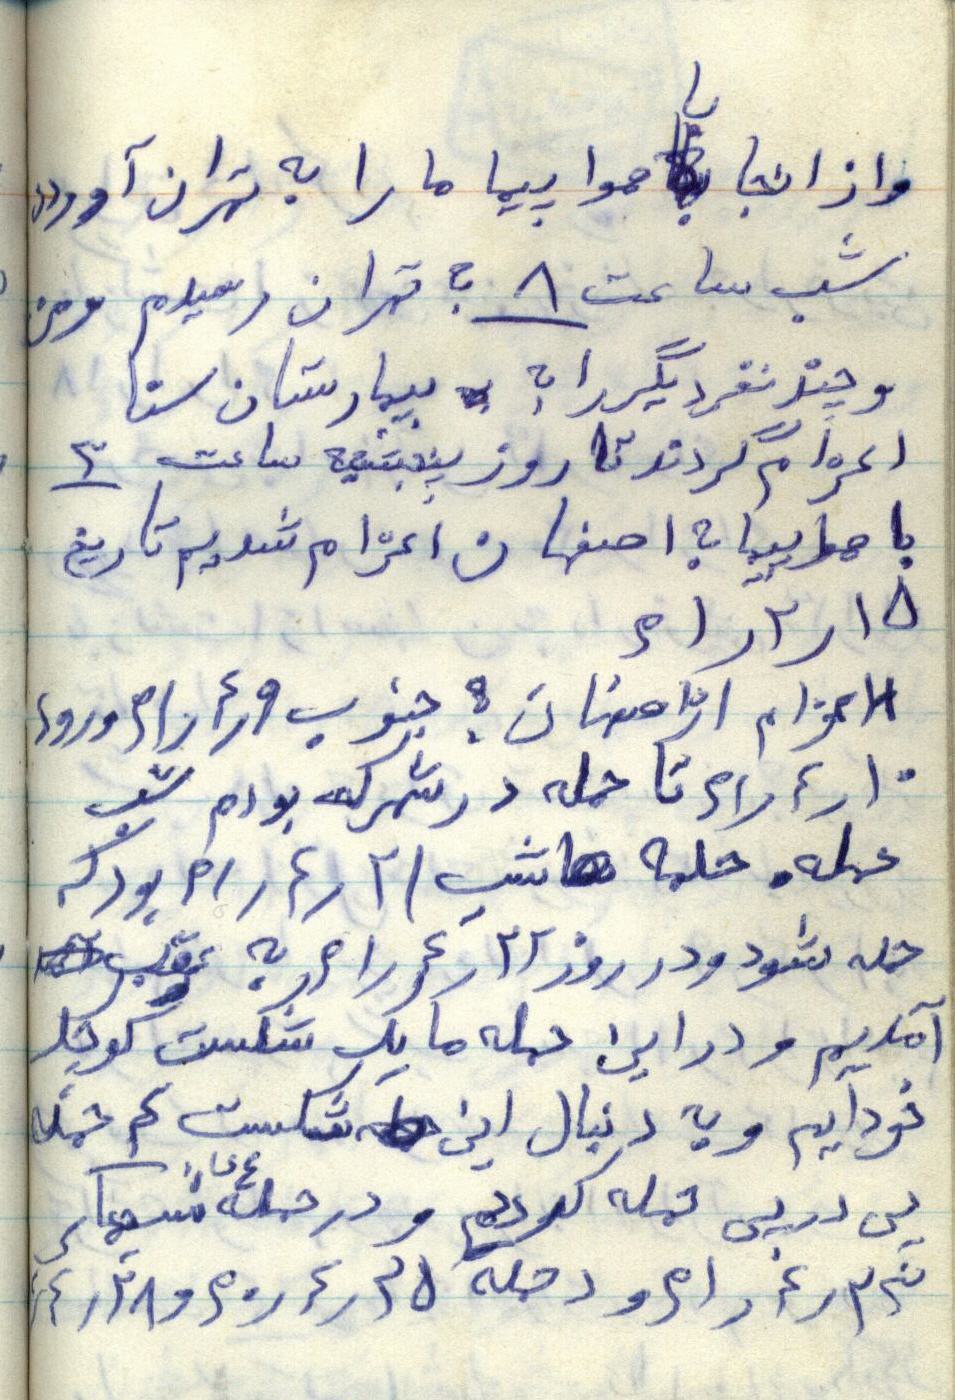 واز انجا با هوا پیما ما را به تهران آوردن
شب ساعت ۸ به تهران رسیدم ومن
و چند نفر دیگر را به بیمارستان سنا
اعزام کردند تا روز پنجشنبه ساعت ۳
با هواپیما به اصفهان اعزام شدیم تاریخ
۱۵ر۲ر۶۱
اعزام از اصفهان به جنوب ۹ر۴ر۶۱ ورود
۱۰ر۴ر۶۱ تا حمله در شهرک بودم شب
حمله. حمله شب ۲۱ر۴ر۶۱ بود که
حمله شود ودر روز ۲۲ر۴ر۶۱ به عقب
آمدیم و در این حمله ما یک شکست کوچک
خوردایم و به دنبال این شکست ۴ حمله
پی در پی حمله کردیم و در حمله
۲ر۴ر۶۱ و در حمله ۲۵ر۴ر۶۰ و ۲۸ر۴ر